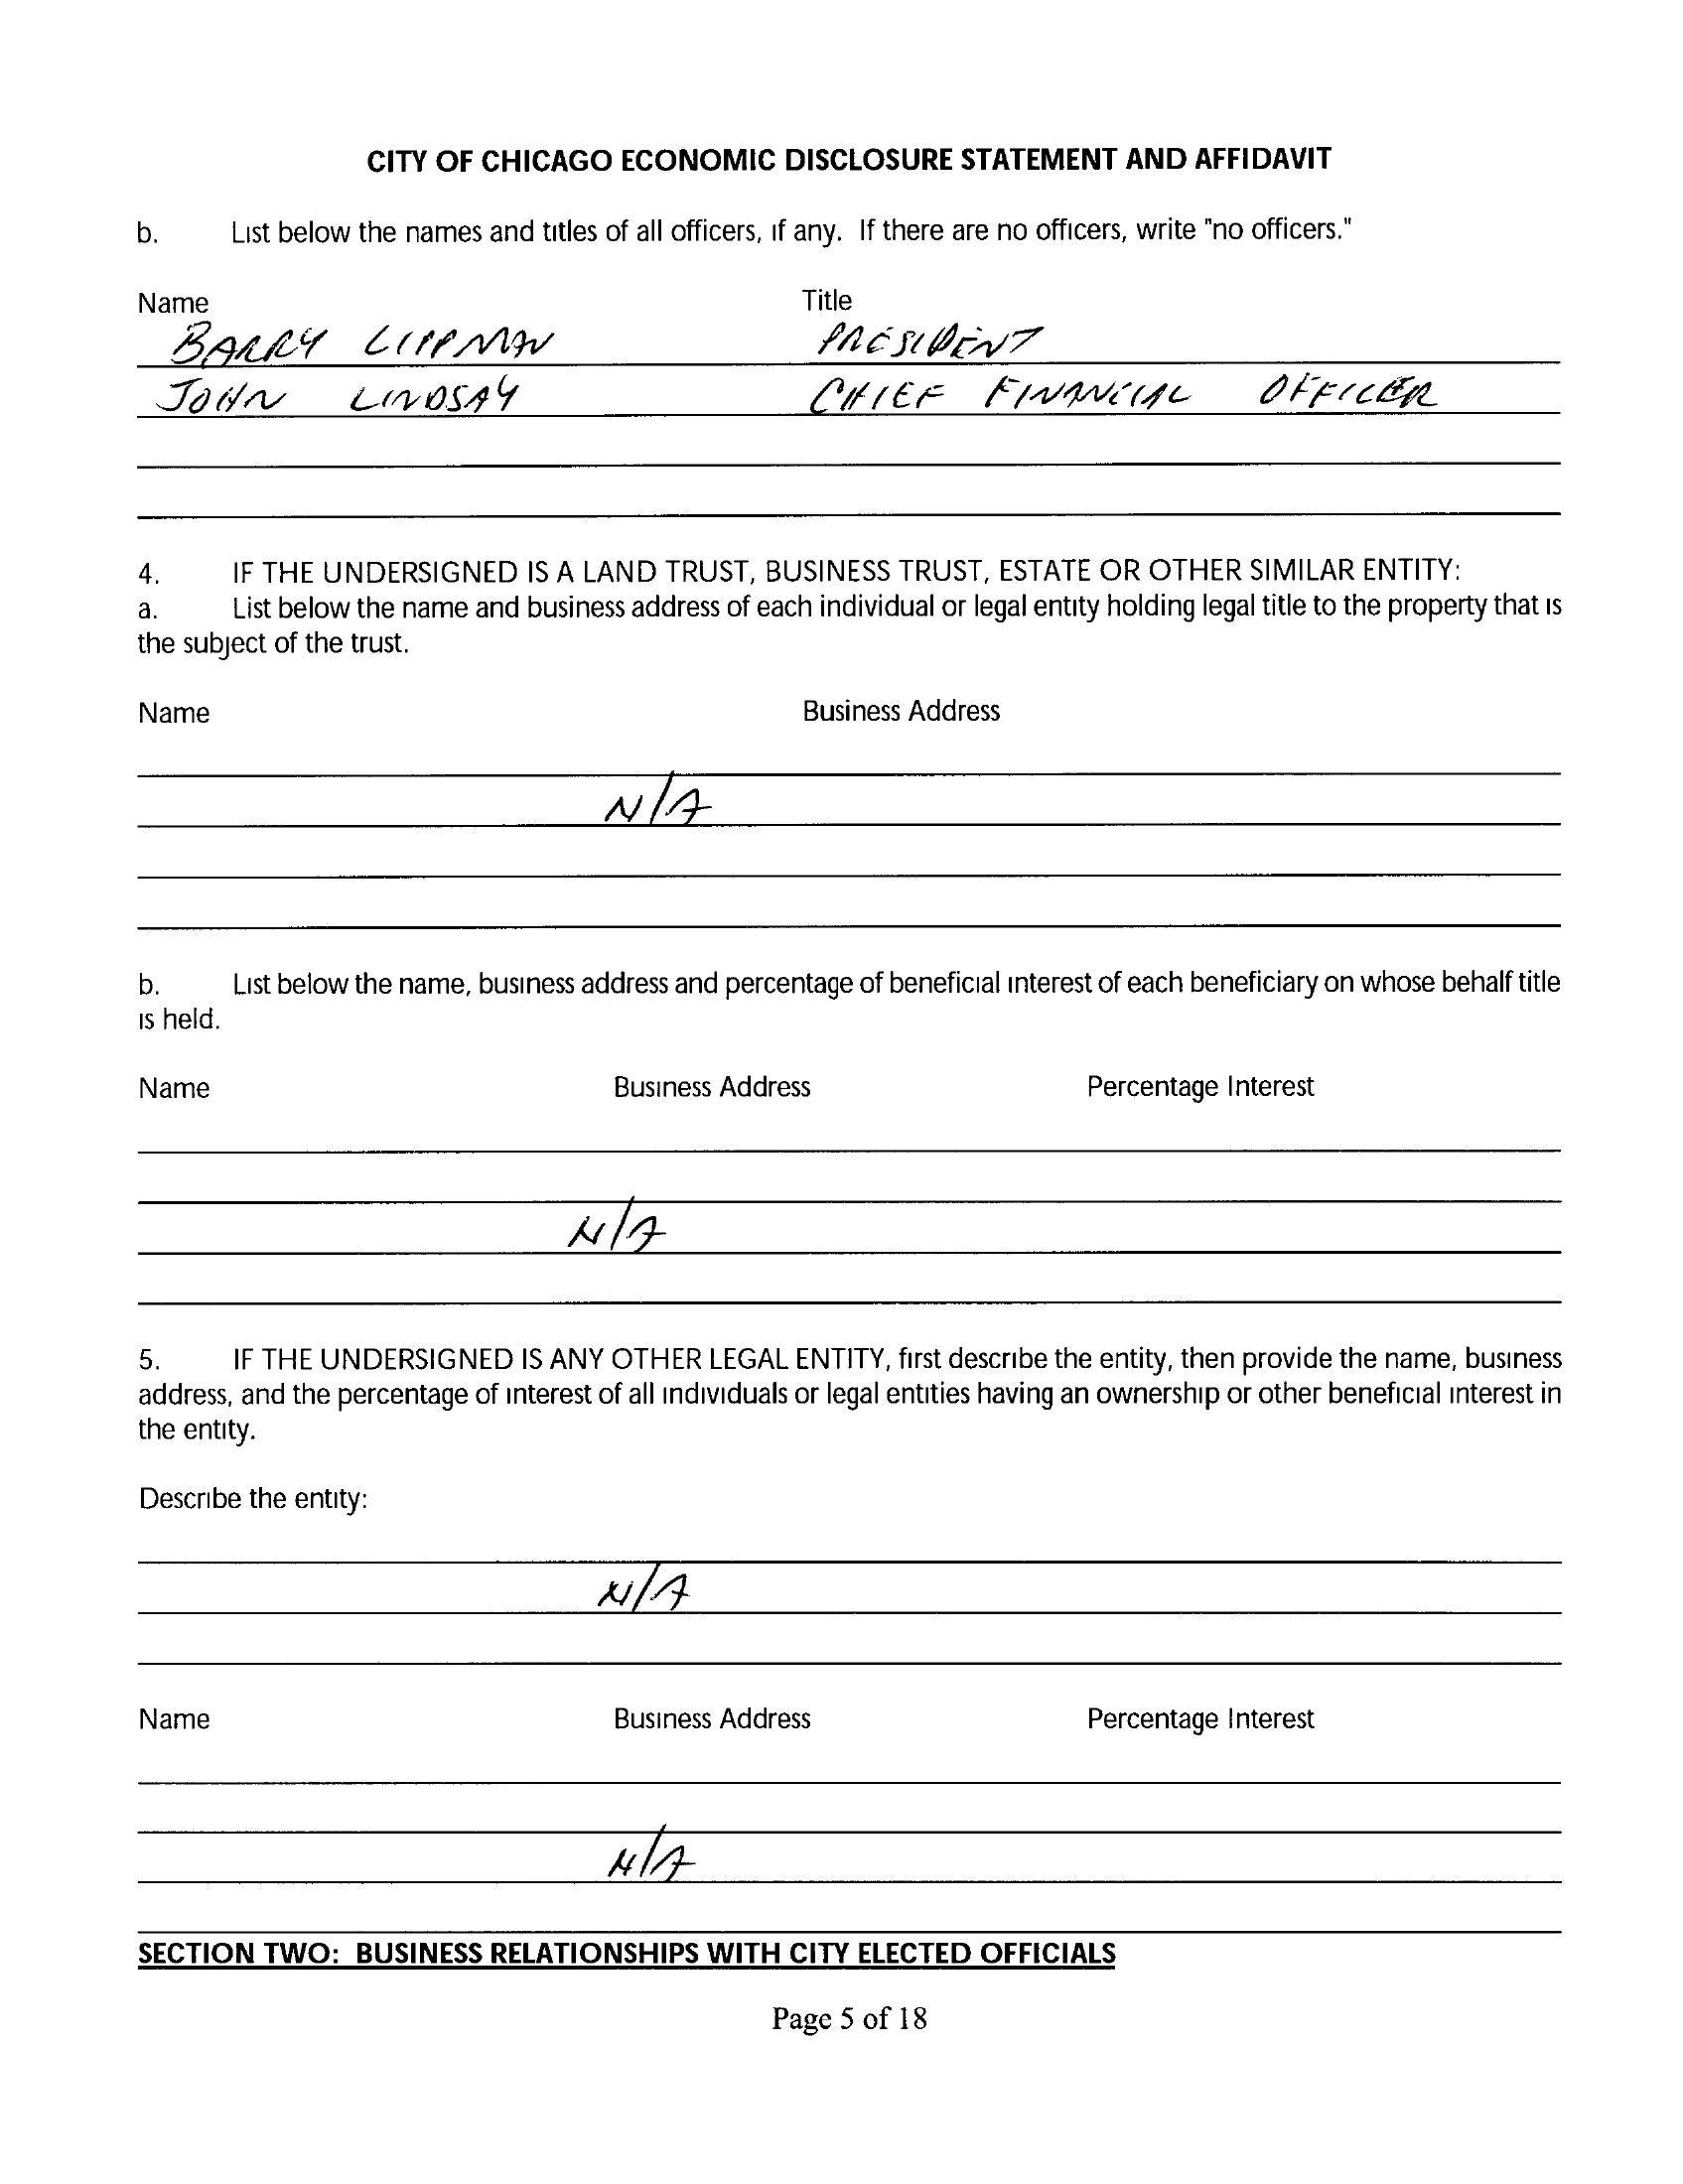 CITY OF CHICAGO ECONOMIC DISCLOSURE STATEMENT AND AFFIDAVIT
b. List below the names and titles of all officers, if any. If there are no officers, write "no officers."
Name Title
BARRY LIPPMAN PRESIDENT
JOHN LINDSAY CHIEF FINANCIAL OFFICER
4. IF THE UNDERSIGNED IS A LAND TRUST, BUSINESS TRUST, ESTATE OR OTHER SIMILAR ENTITY:
a. List below the name and business address of each individual or legal entity holding legal title to the property that is
the subject of the trust.
Name Business Address
N/A
b. List below the name, business address and percentage of beneficial interest of each beneficiary on whose behalf title
is held.
Name Business Address Percentage Interest
N/A
5. IF THE UNDERSIGNED IS ANY OTHER LEGAL ENTITY, first describe the entity, then provide the name, business
address, and the percentage of interest of all individuals or legal entities having an ownership or other beneficial interest in
the entity.
Describe the entity:
N/A
Name Business Address Percentage Interest
N/A
SECTION TWO: BUSINESS RELATIONSHIPS WITH CITY ELECTED OFFICIALS
Page 5 of 18